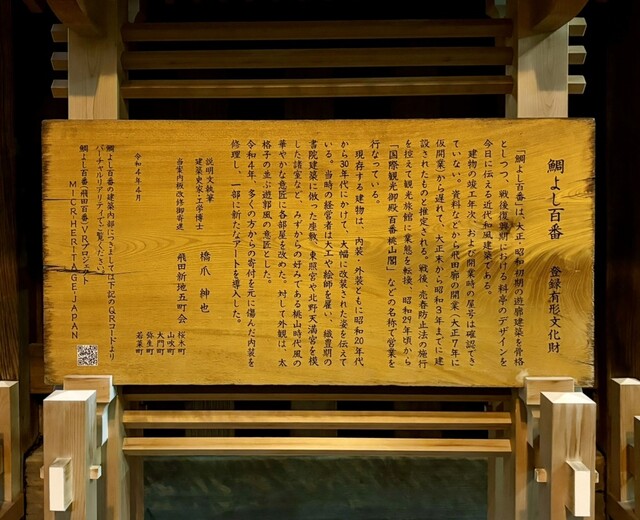 鯛よし百番　登録有形文化財
「鯛よし百番」は、大正・昭和初期の遊廓建築を骨格
としつつ、戦後復興期における料亭のデザインを
今日に伝える近代和風建築である。
建物の竣工年次、および開業時の屋号は確認でき
ていない。資料などから飛田廓の開業（大正７年に
仮開業）から遅れて、大正末から昭和３年までに建
設されたものと推定される。戦後、売春防止法の施行
を控えて観光旅館に業態を転換、昭和29年頃から
「国際観光御殿百番桃山閣」などの名称で営業を
行なっている。
現存する建物は、内装・外装ともに昭和20年代
から30年代にかけて、大幅に改装された姿を伝えて
いる。当時の経営者は大工や絵師を雇い、織豊期の
書院建築に倣った座敷、東照宮や北野天満宮を模
した諸室など、みずからの好みである桃山時代風の
華やかな意匠に各部屋を改めた。対して外観は、太
格子の並ぶ遊郭風の意匠とした。
令和４年、多くの方からの寄付を元に傷んだ内装を
修理し、一部に新たなアートを導入した。
説明文執筆
建築史家・工学博士　橋爪 紳也
当案内板改修御寄進　飛田新地五町会
桜木町
山吹町
大門町
弥生町
若菜町
令和４年４月
鯛よし百番の建築内部につきましては下記のQRコードより
バーチャルリアリティでご覧ください。
鯛よし百番（飛田百番）VRプロジェクト
MICRI・HERITAGE・JAPAN